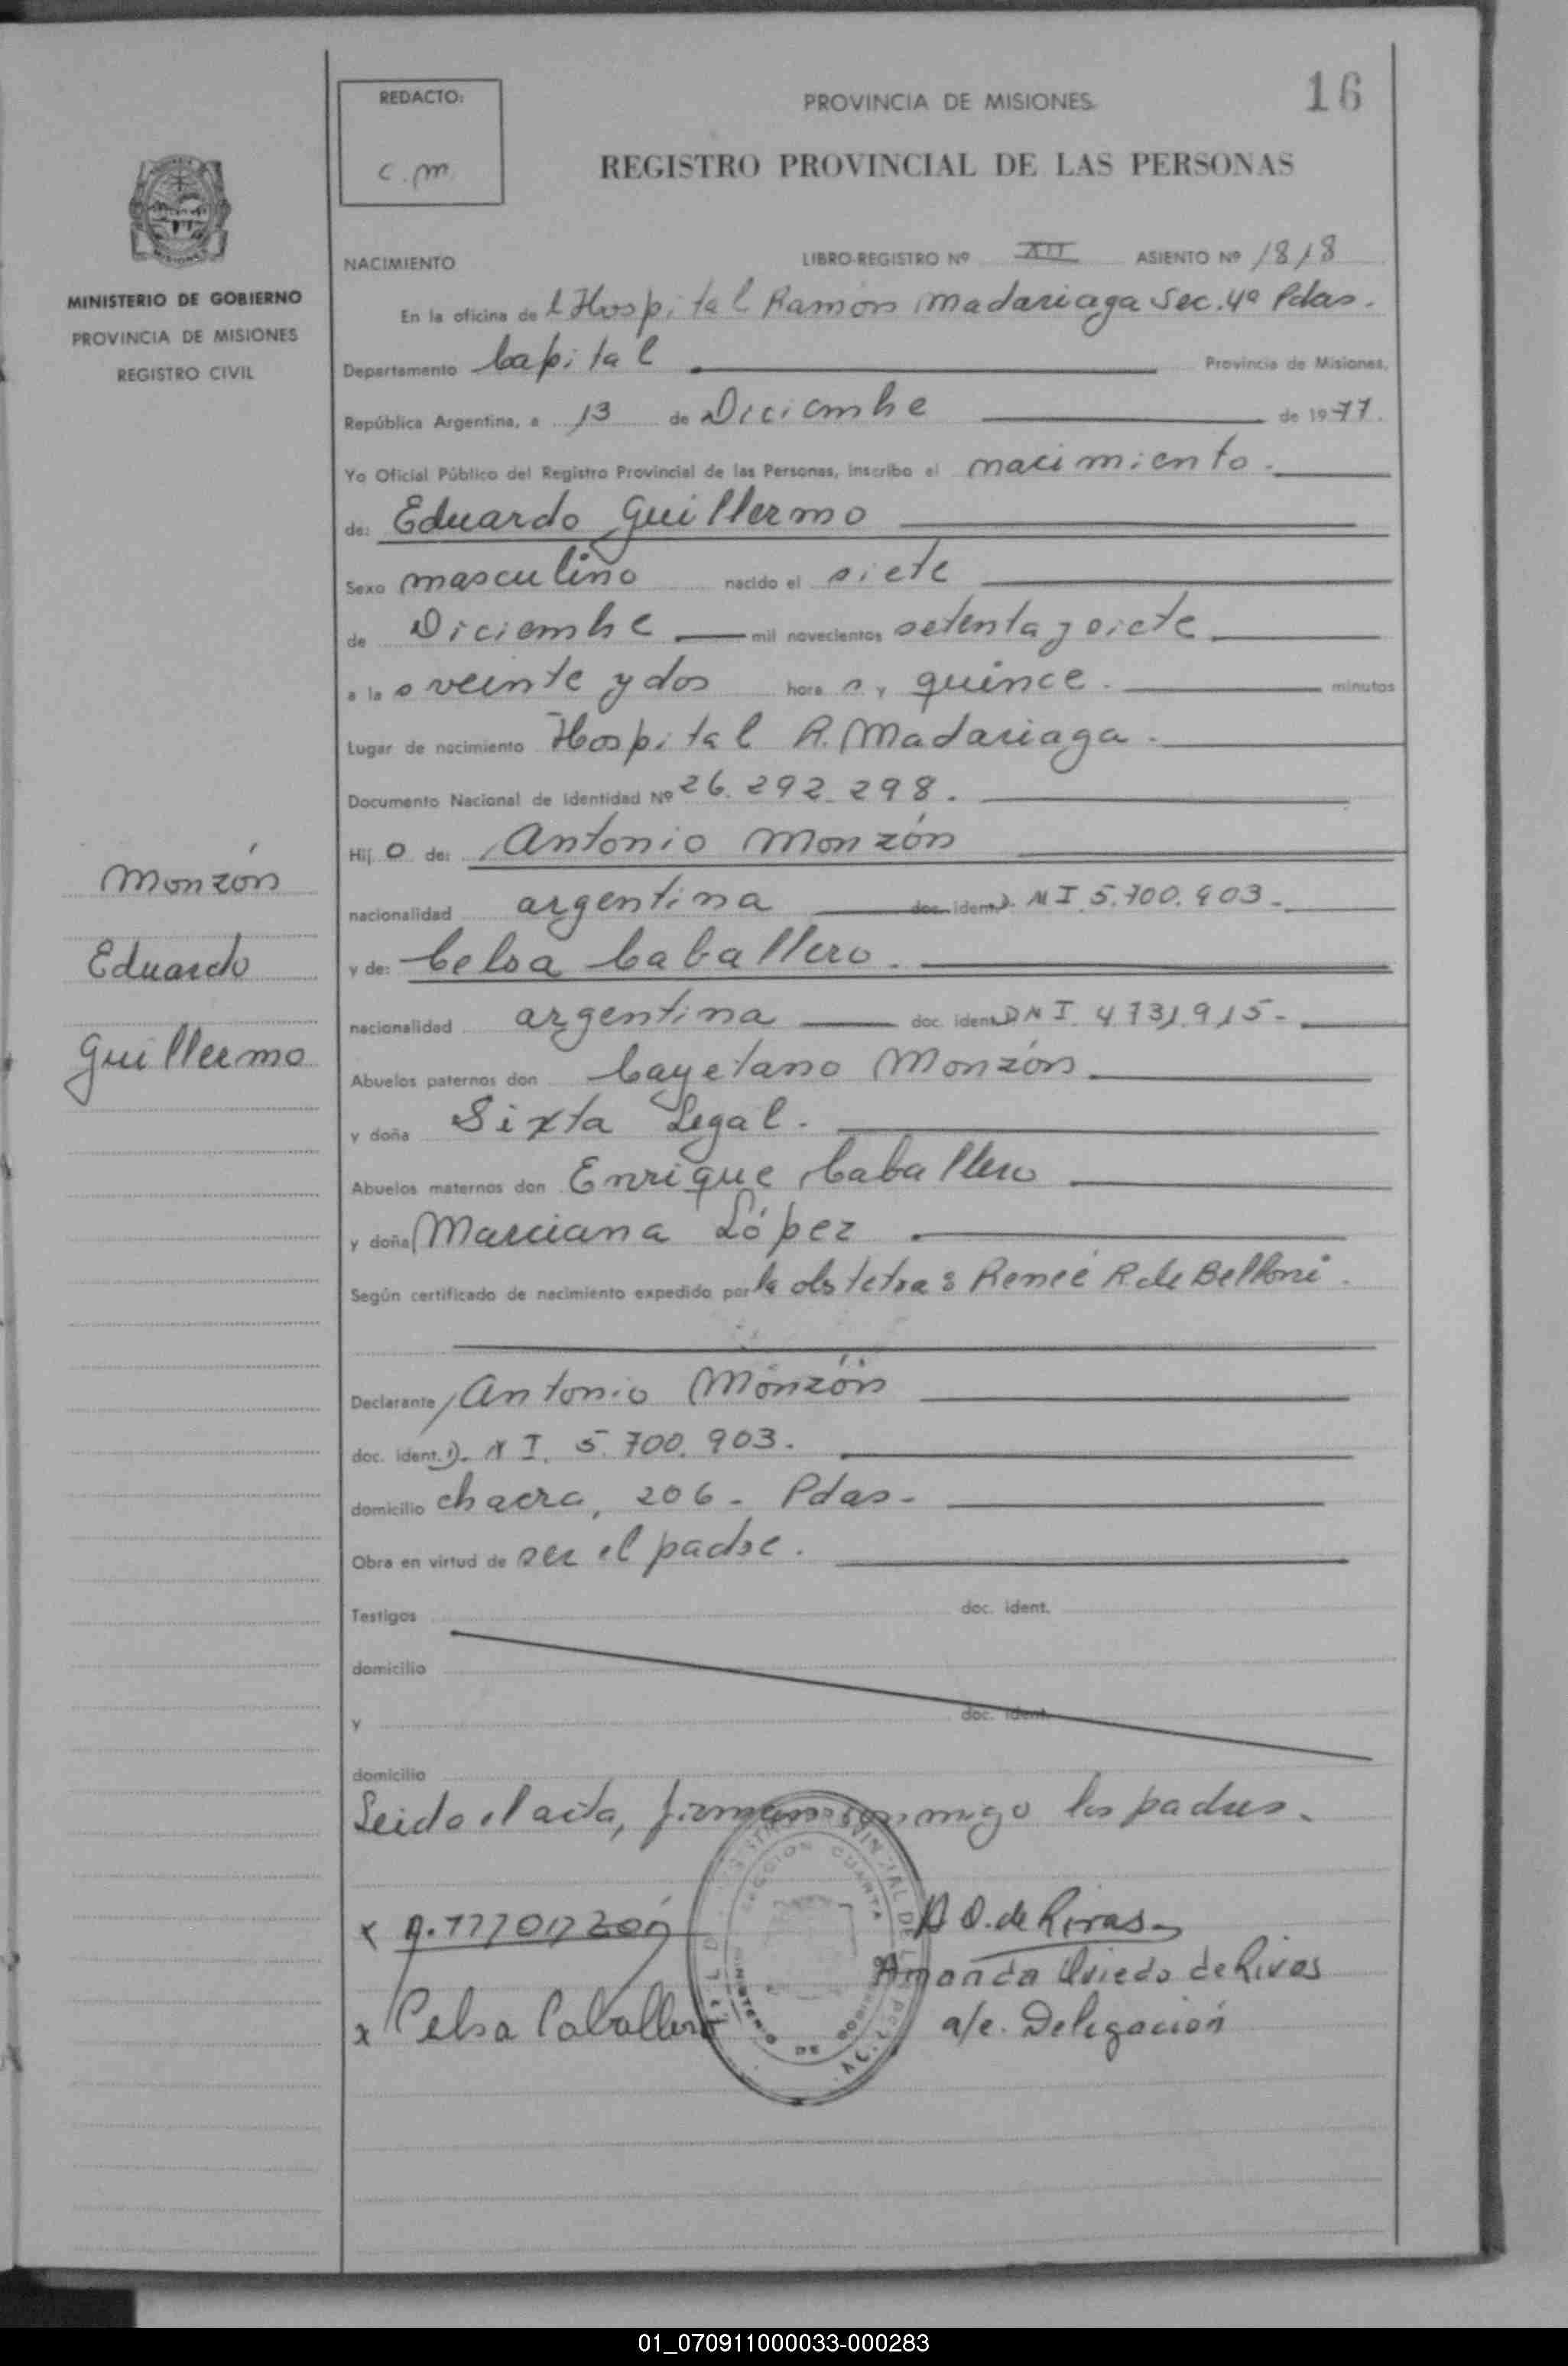 16
REDACTO:
c.m.
PROVINCIA DE MISIONES
REGISTRO PROVINCIAL DE LAS PERSONAS
MINISTERIO DE GOBIERNO
PROVINCIA DE MISIONES
REGISTRO CIVIL
NACIMIENTO LIBRO-REGISTRO Nº XII ASIENTO Nº 1818
En la oficina del Hospital Ramón Madariaga Sec. 4ª Pdas.
Departamento Capital Provincia de Misiones,
República Argentina, a 13 de Diciembre de 1977.
Yo Oficial Público del Registro Provincial de las Personas, inscribo el nacimiento.
de: Eduardo Guillermo
Sexo masculino nacido el siete
de Diciembre mil novecientos setenta y siete
a las veinte y dos horas y quince. minutos
Lugar de nacimiento Hospital R. Madariaga.
Documento Nacional de Identidad Nº 26.292.298.
Hijo de: Antonio Monzón
nacionalidad argentina doc. ident. D.N.I. 5.700.903.
y de: Celsa Caballero.
nacionalidad argentina doc. ident. D.N.I. 4731915-
Abuelos paternos don Cayetano Monzón
y doña Sixta Legal.
Abuelos maternos don Enrique Caballero
y doña Marciana López
Según certificado de nacimiento expedido por la obstetra: Reneé R. de Belloni.
Declarante Antonio Monzón
doc. ident. D.N.I. 5.700.903.
domicilio chacra, 206 - Pdas-
Obra en virtud de ser el padre.
Testigos doc. ident.
domicilio
y doc. ident.
domicilio
Leido el acta, firman conmigo los padres.
x A. Monzón
x Celsa Caballero
A O. de Rivas
Amanda Oviedo de Rivas
a/e. Delegación
SECCION CUARTA
MINISTERIO DE GOBIERNO
Monzón
Eduardo
Guillermo
01_070911000033-000283